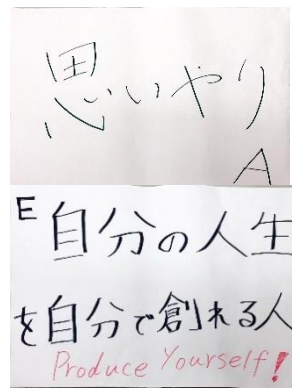 思いやり
A
E
自分の人生
を自分で創れる人
Produce Yourself!